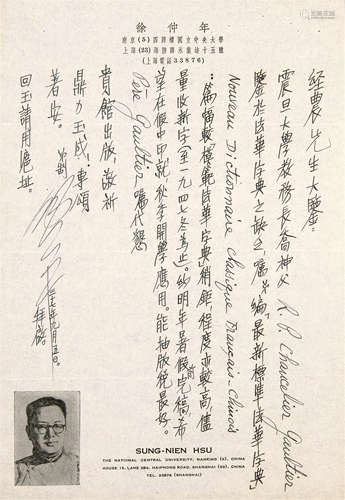 徐仲年
南京(5)四牌樓國立中央大學
上海(23)海防路永康坊十五號
(上海電話33876)
经農先生大鑒：
震旦大學教務長喬神父 R. P. Chancelier Gaultier
鑒於法華字典之缺乏，囑弟編「最新標準法華字典」
Nouveau Dictionnaire classique Français-Chinois
篇幅較「模範法華字典」稍鉅，程度亦較高，儘
量收新字(至一九四七年為止)。約明年暑假前完稿，希
望在後年即秋季開學應用。能抽版稅最好。
Père Gaultier 囑代懇
貴館出版，敬祈
鼎力玉成！專頌
著安。
弟
拜啟。
九月五日。
回玉請用滬址。
SUNG-NIEN HSU
THE NATIONAL CENTRAL UNIVERSITY, NANKING (5), CHINA
HOUSE 15, LANE 384, HAIPHONG ROAD, SHANGHAI (23), CHINA
TEL. 33876 (SHANGHAI)